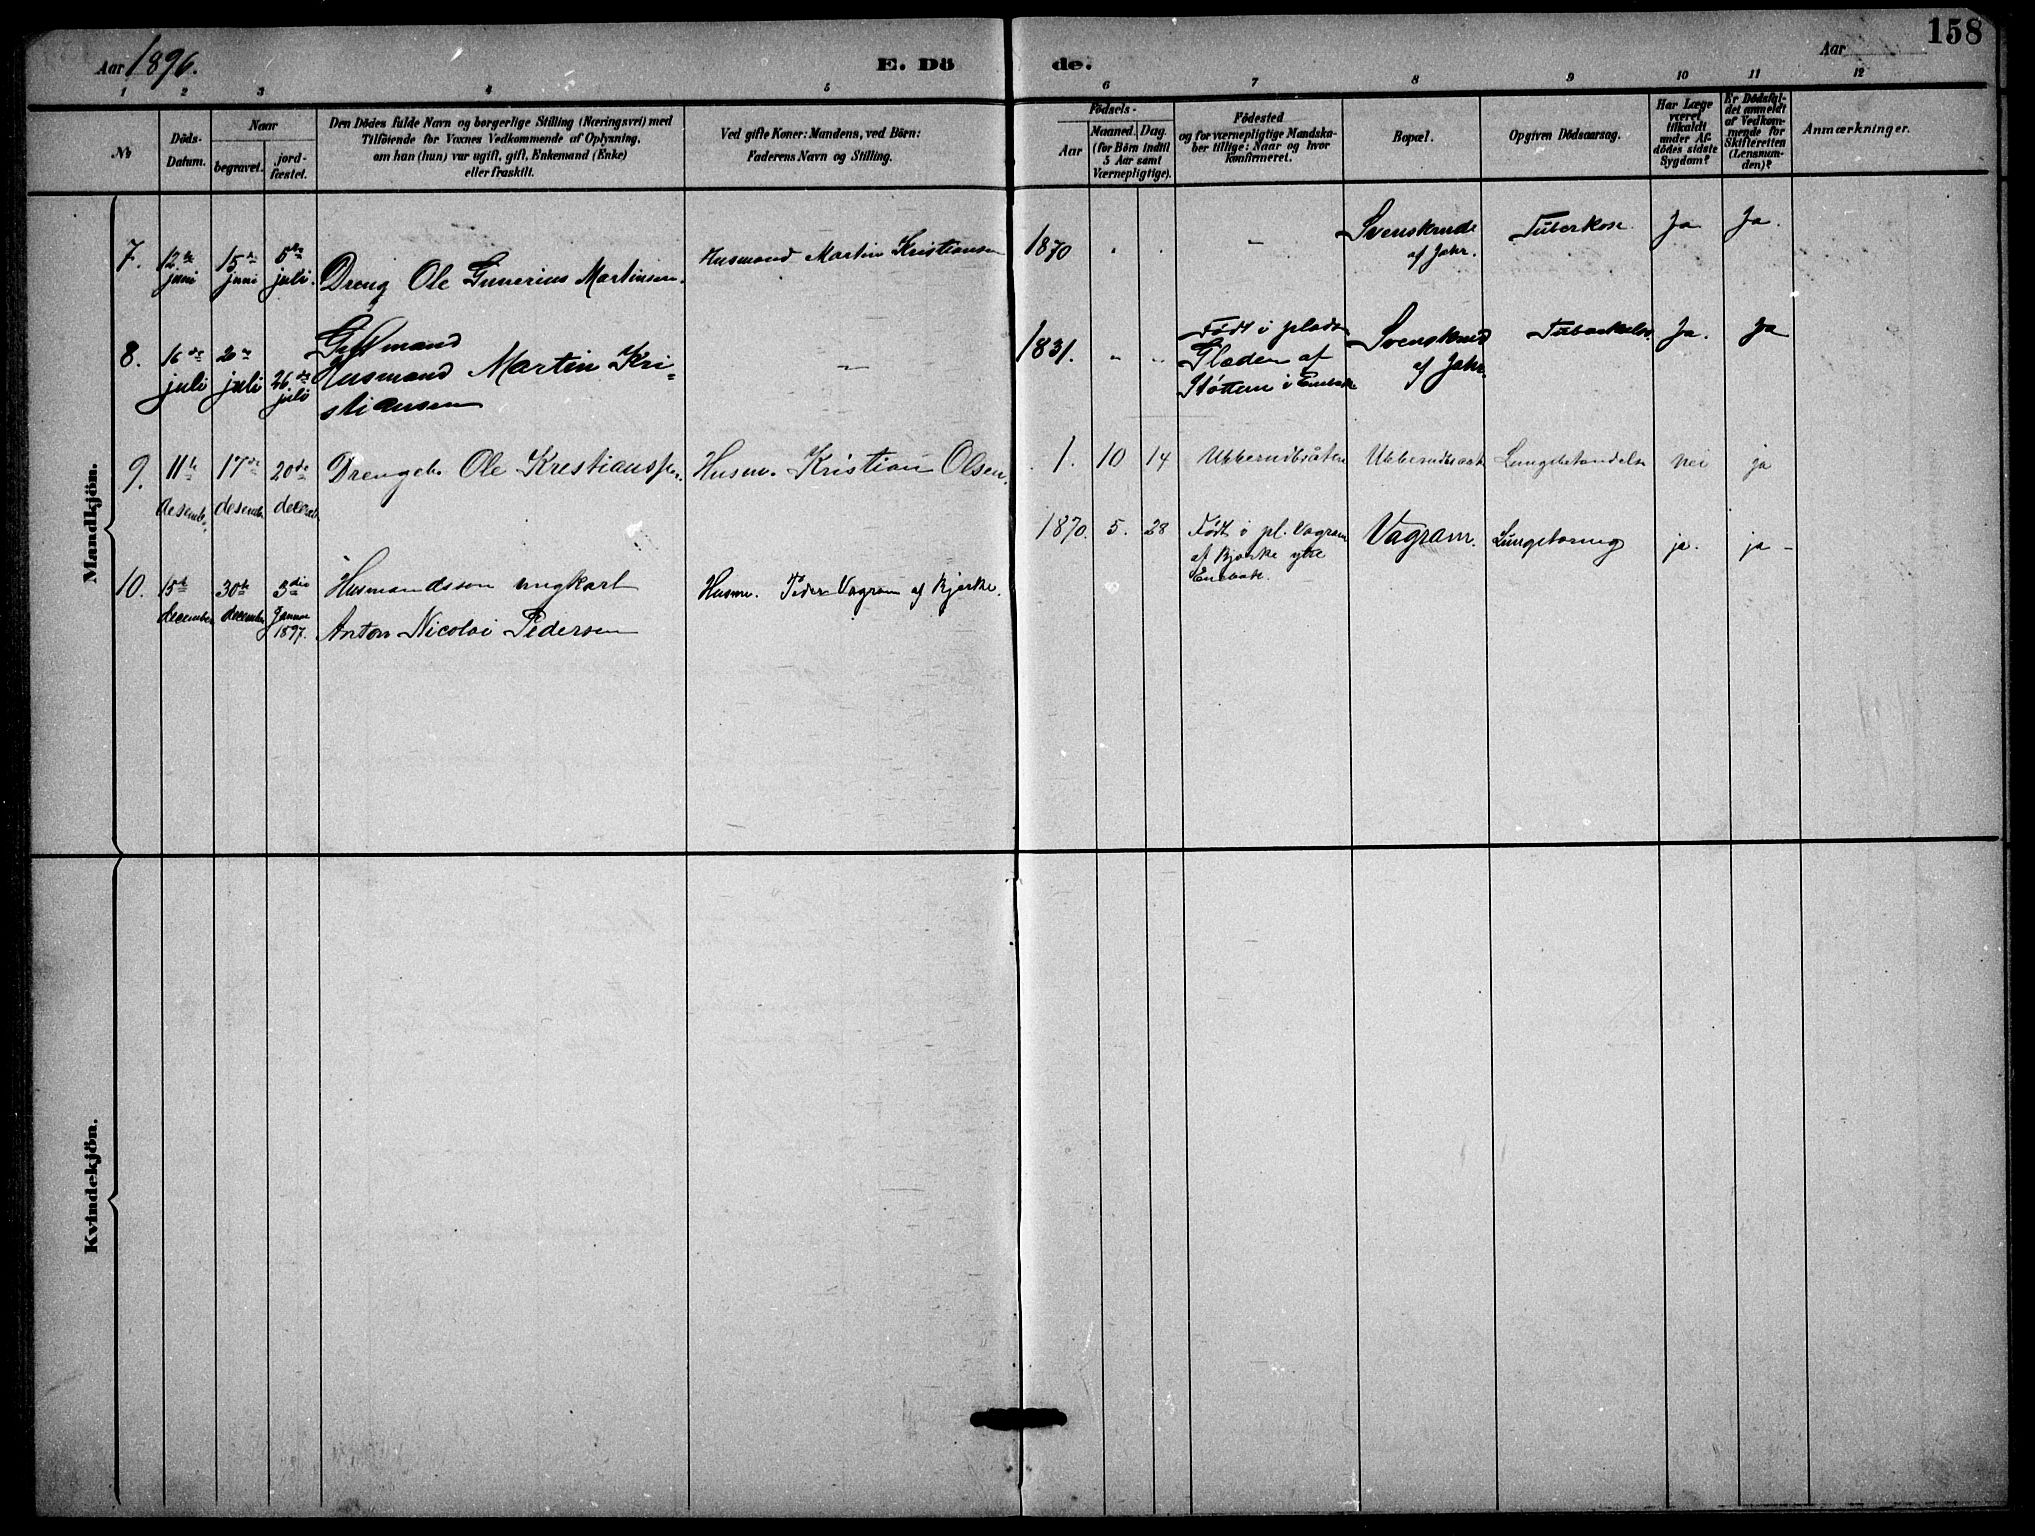 158
Aar 1896.
E. Döde.
Aar
1 2 3 4 5 6 7 8 9 10 11 12
No
Döds-Datum.
Naar
begravet.
jordfæstet.
Den Dödes fulde Navn og borgerlige Stilling (Næringsvei) med
Tilföiende for Voxnes Vedkommende af Oplysning,
om han (hun) var ugift, gift, Enkemand (Enke)
eller fraskilt.
Ved gifte Koner: Mandens, ved Börn:
Faderens Navn og Stilling.
Födsels-
Aar
Maaned. Dag.
(for Börn indtil
5 Aar samt
Værnepligtige).
Födested
og for værnepligtige Mandska-
ber tillige: Naar og hvor
konfirmeret.
Bopæl.
Opgiven Dödsaarsag.
Har Læge
været
tilkaldt
under Af-
dödes sidste
Sygdom?
Er Dödsfal-
det anmeldt
af Vedkom-
mende for
Skifteretten
(Lensman-
den)?
Anmærkninger.
Mandkjön.
7. 12te juni 15de juni 5te juli. Dreng Ole Gunerius Martinsen. Husmand Martin Kristiansen 1870 " " — Svenskrude af Jahr. Tuberkose Ja Ja.
8. 16de juli 20de juli 26de juli
Giftmand
Husmand Martin Kri-
stiansen
— 1831. " "
Födt i plads
Gladen af
Støttem i Enebak
Svenskrud
af Jahr.
Tuberkulose Ja. Ja
9. 11te desemb. 17de desemb. 20de decemb. Drengeb. Ole Kristiansen. Husm. Kristian Olsen. 1. 10 14 Ubberudsåten Ubberudsaat Lungebetændelse nei ja
10. 15de december 30te december 3die Januar 1897.
Husmandssøn ungkarl
Anton Nicolai Pedersen
Husm. Peder Vagram af Bjerke.
1870. 5. 28
Født i pl. Vagram
af Bjerke ytre
Enebak.
Vagram. Lungetæring ja. ja –
Kvindekjön.